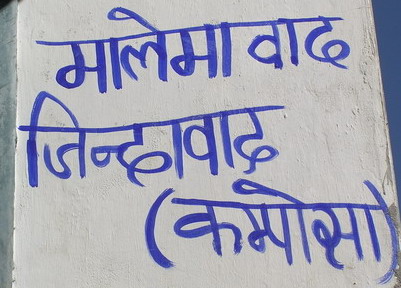 मालेमा वाद
जिन्दावाद
(कम्पोसा)